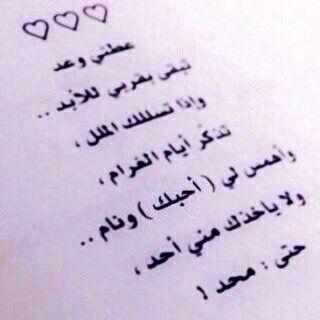 عطني وعد
تبقى بقربي للأبد ..
وإذا تسللك الملل ،
تذكّر أيام الغرام ،
وأهمس لي ( أحبك ) ونام ..
ولا ياخذك مني أحد ،
حتى : محد !